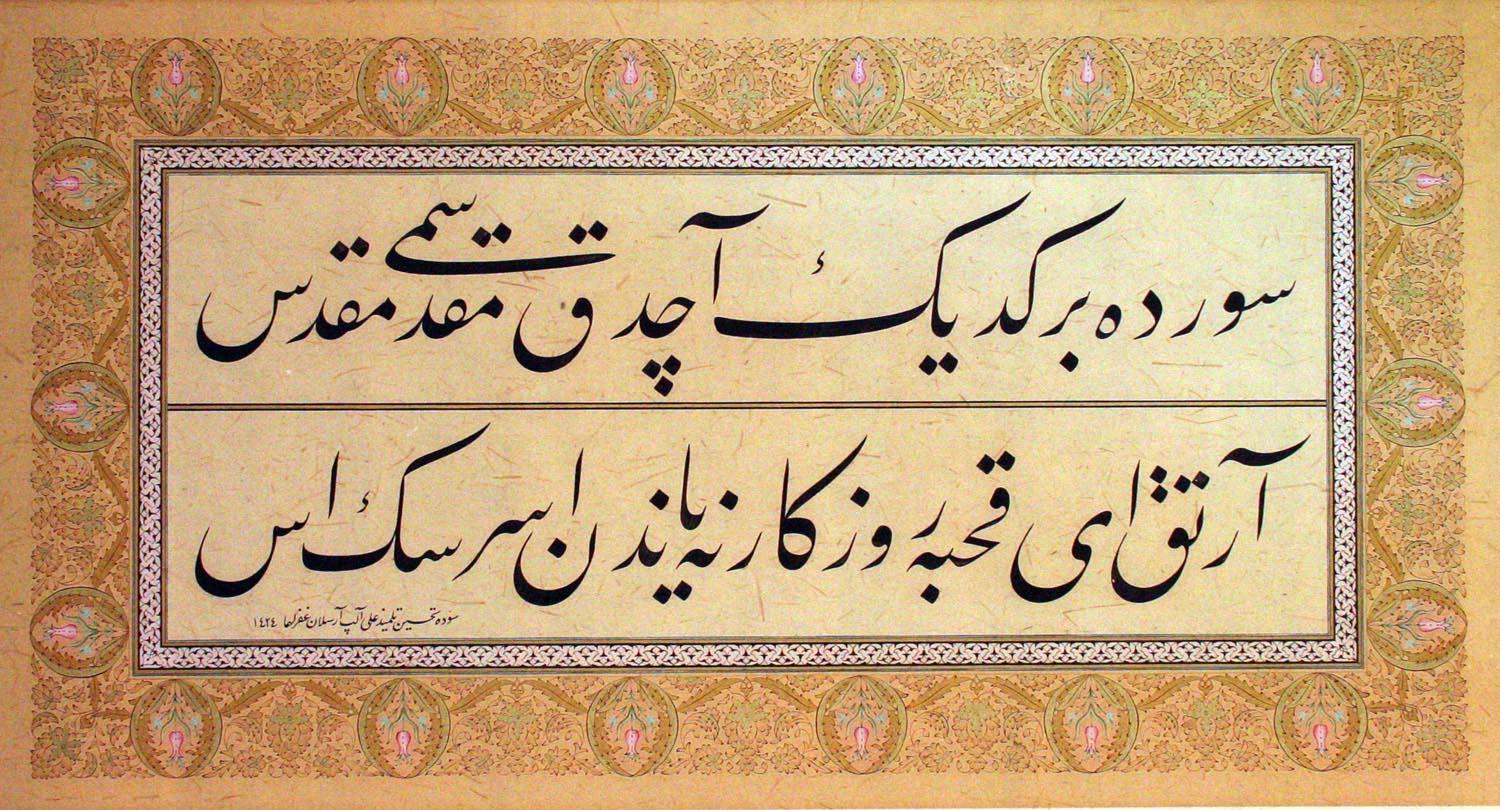 سورده بر كديك آچدق مقدسمى مقدس
آرتق اى قحبه روزكار نه ياندن اسرسك اس
سوده تحسين تلميذ على آلپ آرسلان غفرلهما ١٤٢٤